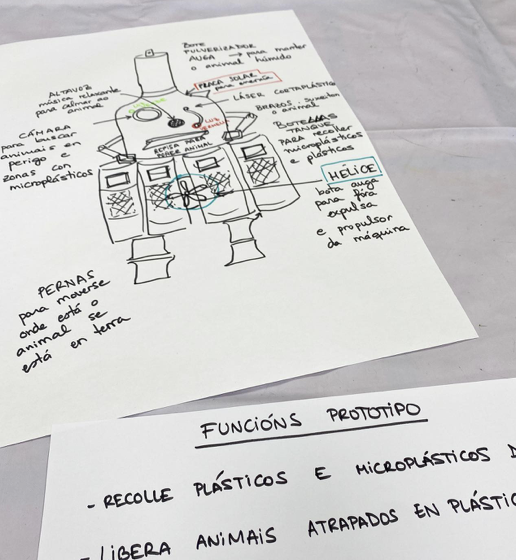 BOTE
PULVERIZADOR
AUGA → para manter
o animal húmido
PLACA SOLAR
para enerxía
LÁSER CORTAPLÁSTICO
BRAZOS:
o animal
BOTELLAS
TANQUE
PARA recoller
microplásticos
e plásticos
HÉLICE
bota auga
para fóra
expulsa
e propulsor
da máquina
ALTAVOZ
música relaxante
para calmar ao
animal
CÁMARA
para buscar
animais en
perigo e
zonas con
microplásticos
REPISA PARA
POÑER ANIMAL
PERNAS
para moverse
onde está o
animal se
está en terra
FUNCIÓNS PROTOTIPO
- RECOLLE PLÁSTICOS E MICROPLÁSTICOS D
- LIBERA ANIMAIS ATRAPADOS EN PLÁSTIC